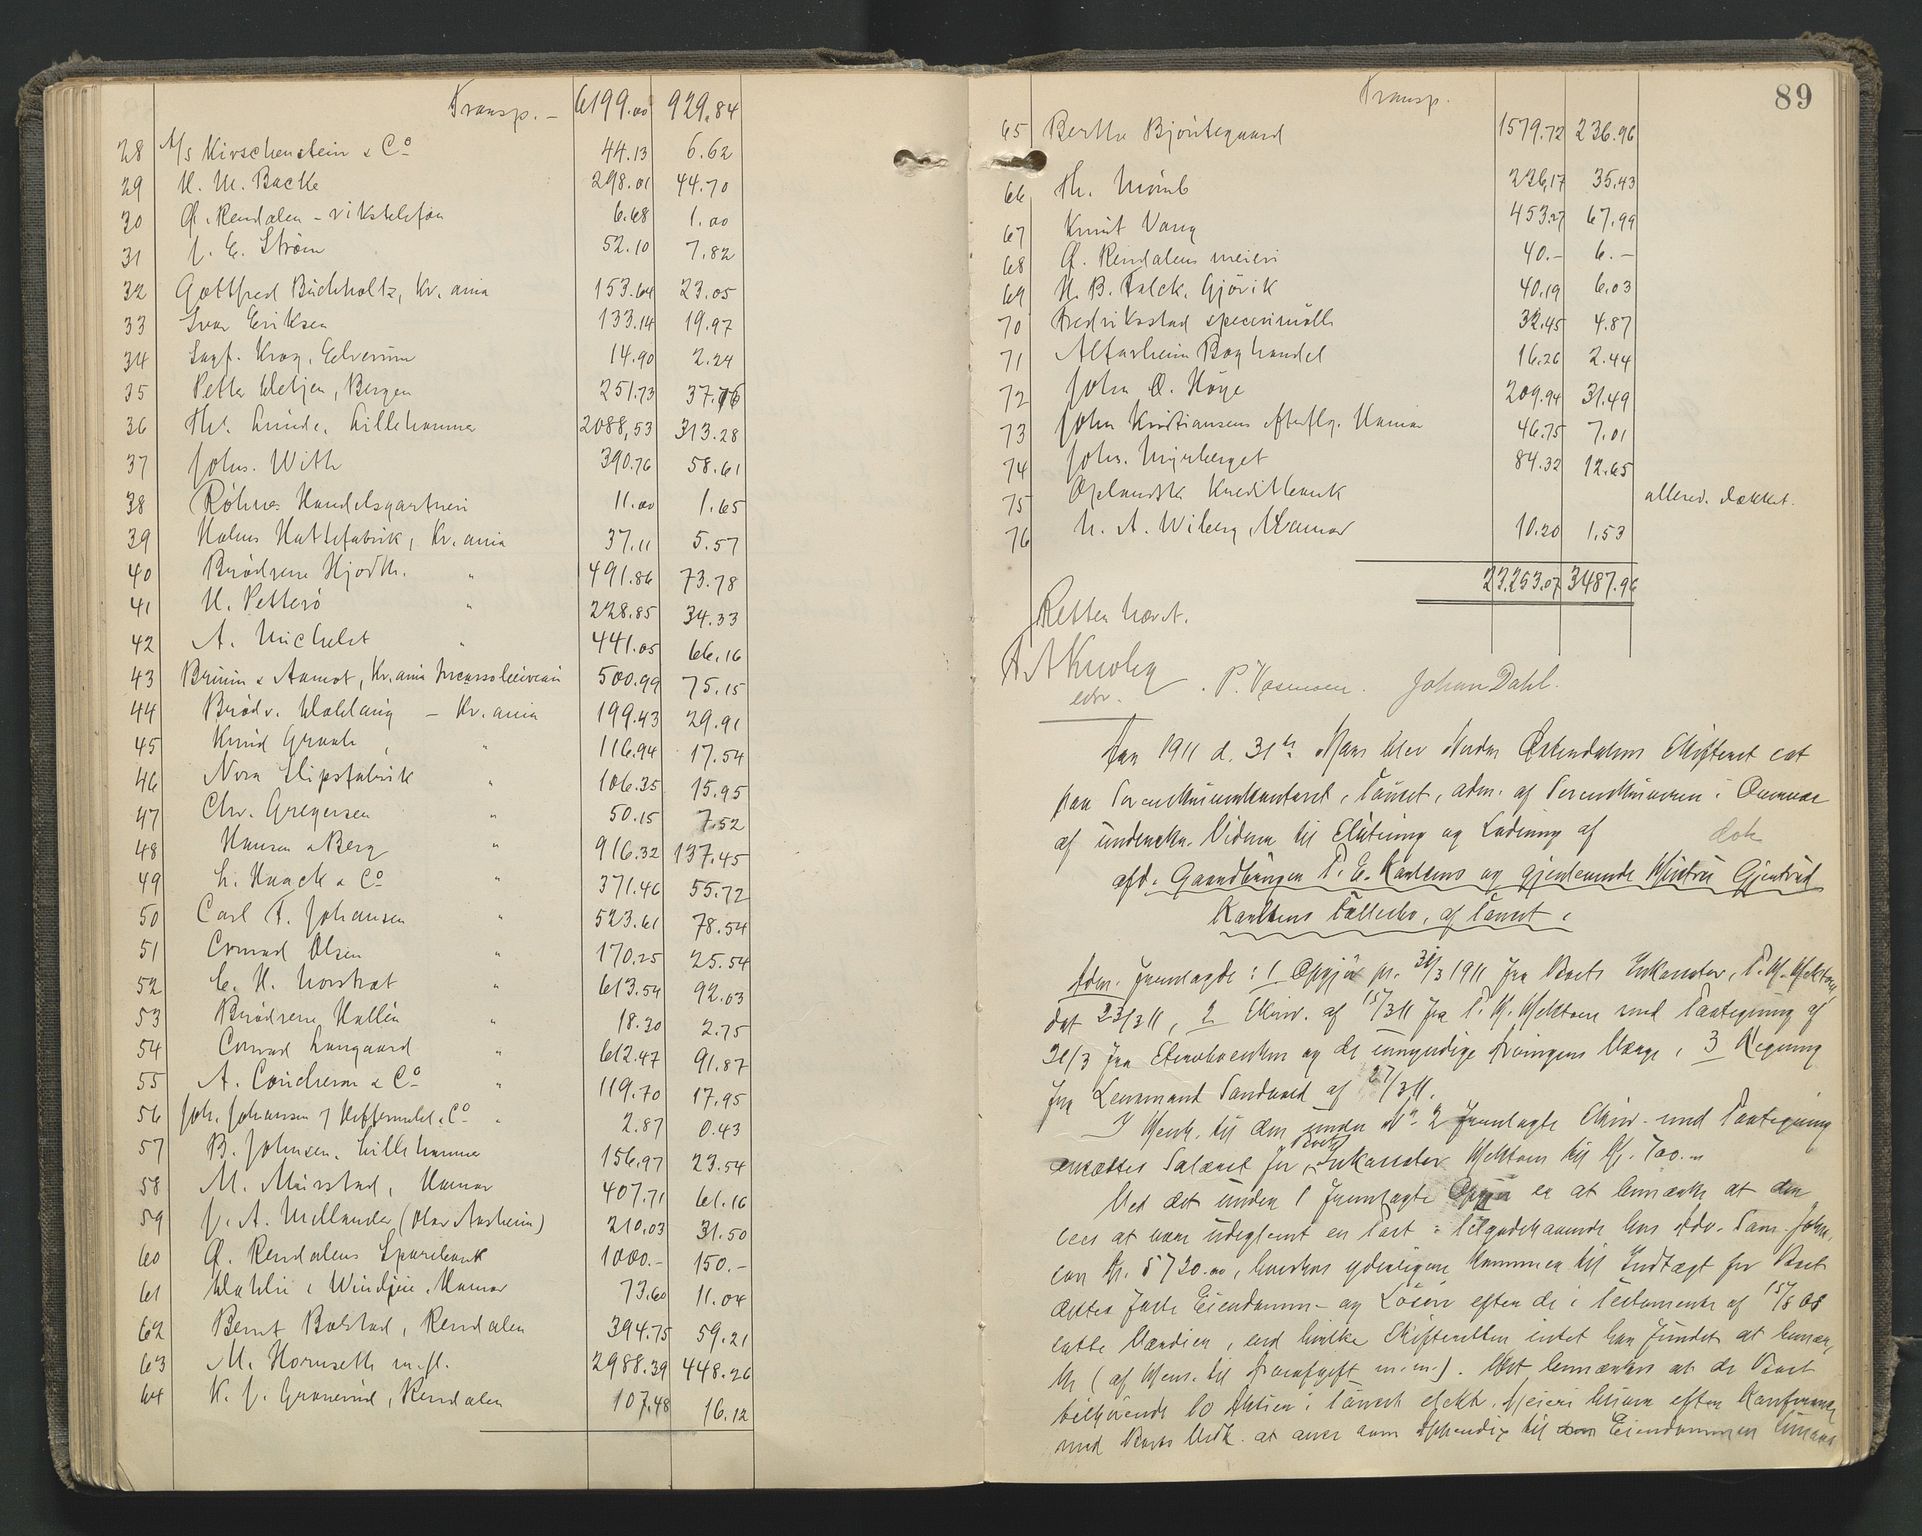 Transp. – 6199.00 929.84
28 A/s Kirschenstein & Co 44.13 6.62
29 H. M. Backe 298.01 44.70
30 Ø. Rendalen - rikstelefon 6.68 1.00
31 J. E. Strøm 52.10 7.82
32 Gottfred Buchholtz, Kr.ania 153.64 23.05
33 Ivar Eriksen 133.14 19.97
34 Sagf. Krog, Elverum 14.90 2.24
35 Petter Wetjen, Bergen 251.73 37.76
36 Thv. Lunde, Lillehammer 2088,53 313.28
37 Johs. With 390.76 58.61
38 Røhnes Handelsgartneri 11.00 1.65
39 Holms Hattefabrik, Kr.ania 37.11 5.57
40 Brødrene Hjorth. " 491.86 73.78
41 H. Petterø " 228.85 34.33
42 A. Michelet " 441.05 66.16
43 Bruun & Aamot, Kr.ania Incassobureau 500.99 75.15
44 Brødr. Wahlang – Kr.ania 199.43 29.91
45 Knud Graah, " 116.94 17.54
46 Nora Slipsfabrik " 106.35 15.95
47 Chr. Gregersen " 50.15 7.52
48 Hansen & Berg " 916.32 137.45
49 L. Haack & Co " 371.46 55.72
50 Carl F. Johansen " 523.61 78.54
51 Conrad Olsen " 170.25 25.54
52 C. H. Norstrøt " 613.54 92.03
53 Brødrene Hallén " 18.30 2.75
54 Conrad Langaard " 612.47 91.87
55 A. Coucheron & Co " 119.70 17.95
56 Joh. Johannson & Co " 2.87 0.43
57 B. Johnsen, Lillehammer 156,97 23.54
58 M. Mürstad, Hamar 407.71 61.16
59 J. A. Mellander (Olav Aasheim) 210.03 31.50
60 Ø. Rendalens Sparebank 1000.– 150.–
61 Windju, Hamar 73.60 11.04
62 Bernt Bolstad, Rendalen 394.75 59.21
63 M. Hornseth m.fl. 2988.39 448.26
64 K. J. Granerud, Rendalen 107,48 16.12
89
Transp.
65 Berthe Bjøntegaard 1579.72 236.96
66 Th. Momb 226,17 35.43
67 Knut Vang 453.27 67.99
68 Ø. Rendalens meieri 40.– 6.–
69 H. B. Falck, Gjøvik 40.19 6.03
70 Fredriksstad specerimølle 32.45 4.87
71 Alfarheim Boghandel 16.26 2.44
72 John O. Høye 209.94 31.49
73 John Kristiansens Efterflg. Hamar 46.75 7.01
74 Johs. Myrberget 84.32 12.65
75 Oplandsk Kreditbank allered. dækket.
76 N. A. Wiberg, Hamar 10.20 1,53
23.253.07 3487.96
Retten hævet.
A Knoby
edv. P. Johan Dahl.
Aar 1911 d. 31te Mars blev Nordre Østerdalens Skifteret sat
paa Sorenskriverkontoret, Tønset, adm. af Sorenskriveren i Overvær
af underskr. Vidner til Slutning og Lodning af
dok
afd. Gaardbruger P. E. Karlsens og gjenlevende Hustru Gjertrud
Karlsens Fællesbo, af Tønset.
Adm. fremlagde: 1 Opgjør pr. 31/3 1911 fra Boets Inkassator,
dat 23/3 11, 2 Skriv. af 15/3 11 fra med Paategning af
31/3 fra og de umyndige Arvingers Værge, 3 Regning
fra Lensmand Sandvold af 27/3 11.
I Henh. til den under No 2 fremlagte Skriv. med Paategning
ansættes Salæret for Boets Inkassator til Kr. 700.–
Ved det under 1 fremlagte Opgjør er at bemærke at der
sees at være udeglemt en Post: Tilgodehavende hos Adv. Joh.
Kr. 5720.00, hvorhos yderligere kommer til Indtægt for Boet
dettes faste Eiendomme og Løsøre efter de i Testamente af 15/8 08
satte Værdier, mod hvilke Skifteretten intet har fundet at bemær-
ke (af Hens. til Arveafgift m.m.). Det bemærkes at de Boet
tilhørende 10 Aktier i Tønset Meieri efter Konference
med Boets Vedk. at være som Appendix til Eiendommen